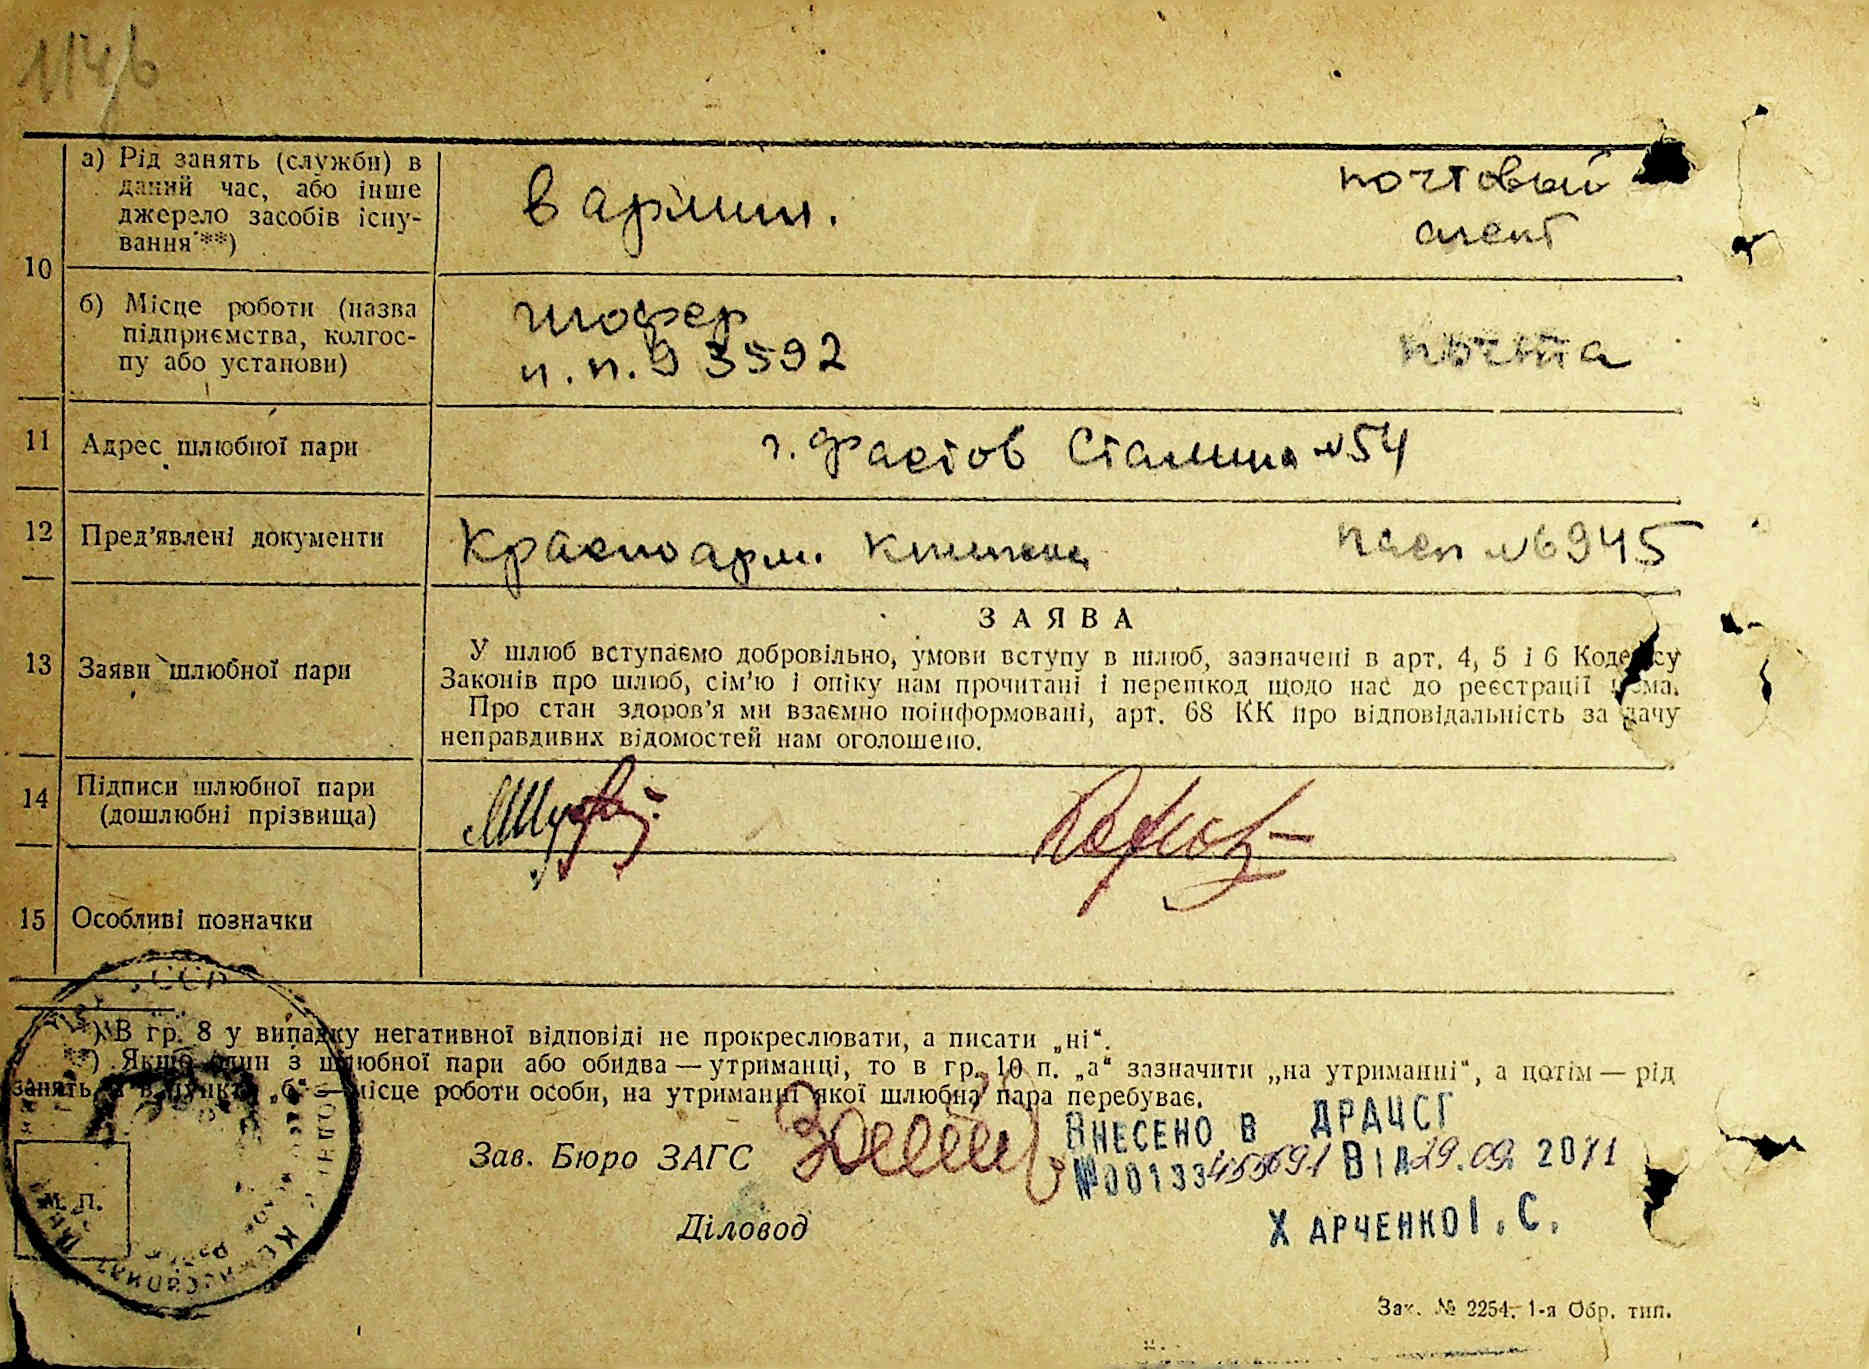 114б
10
а) Рід занять (служби) в
даний час, або інше
джерело засобів існу-
вання **)
в армии.
почтовый
агент
б) Місце роботи (назва
підприємства, колгос-
пу або установи)
шофер
п.п. 93592
почта
11
Адрес шлюбної пари
г. Фастов Сталина №54
12
Пред'явлені документи
Красноарм. книжка
пасп №6945
13
Заяви шлюбної пари
ЗАЯВА
У шлюб вступаємо добровільно, умови вступу в шлюб, зазначені в арт. 4, 5 і 6 Кодексу
Законів про шлюб, сім'ю і опіку нам прочитані і перешкод щодо нас до реєстрації нема.
Про стан здоров'я ми взаємно поінформовані, арт. 68 КК про відповідальність за дачу
неправдивих відомостей нам оголошено.
14
Підписи шлюбної пари
(дошлюбні прізвища)
15
Особливі позначки
*) В гр. 8 у випадку негативної відповіді не прокреслювати, а писати „ні“.
**) Якщо один з шлюбної пари або обидва — утриманці, то в гр. 10 п. „а“ зазначити „на утриманні“, а потім — рід
занять, а в пункті „б“ — місце роботи особи, на утриманні якої шлюбна пара перебуває.
Зав. Бюро ЗАГС
ВНЕСЕНО В ДРАЦСГ
№00133455691 ВІД 29.09. 2011
ХАРЧЕНКО І. С.
М. П.
Діловод
Зак. № 2254. 1-я Обр. тип.